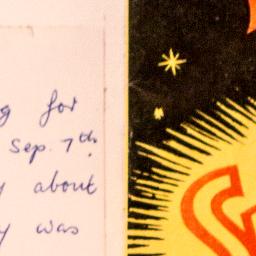 g for
Sep. 7th.
y about
y was